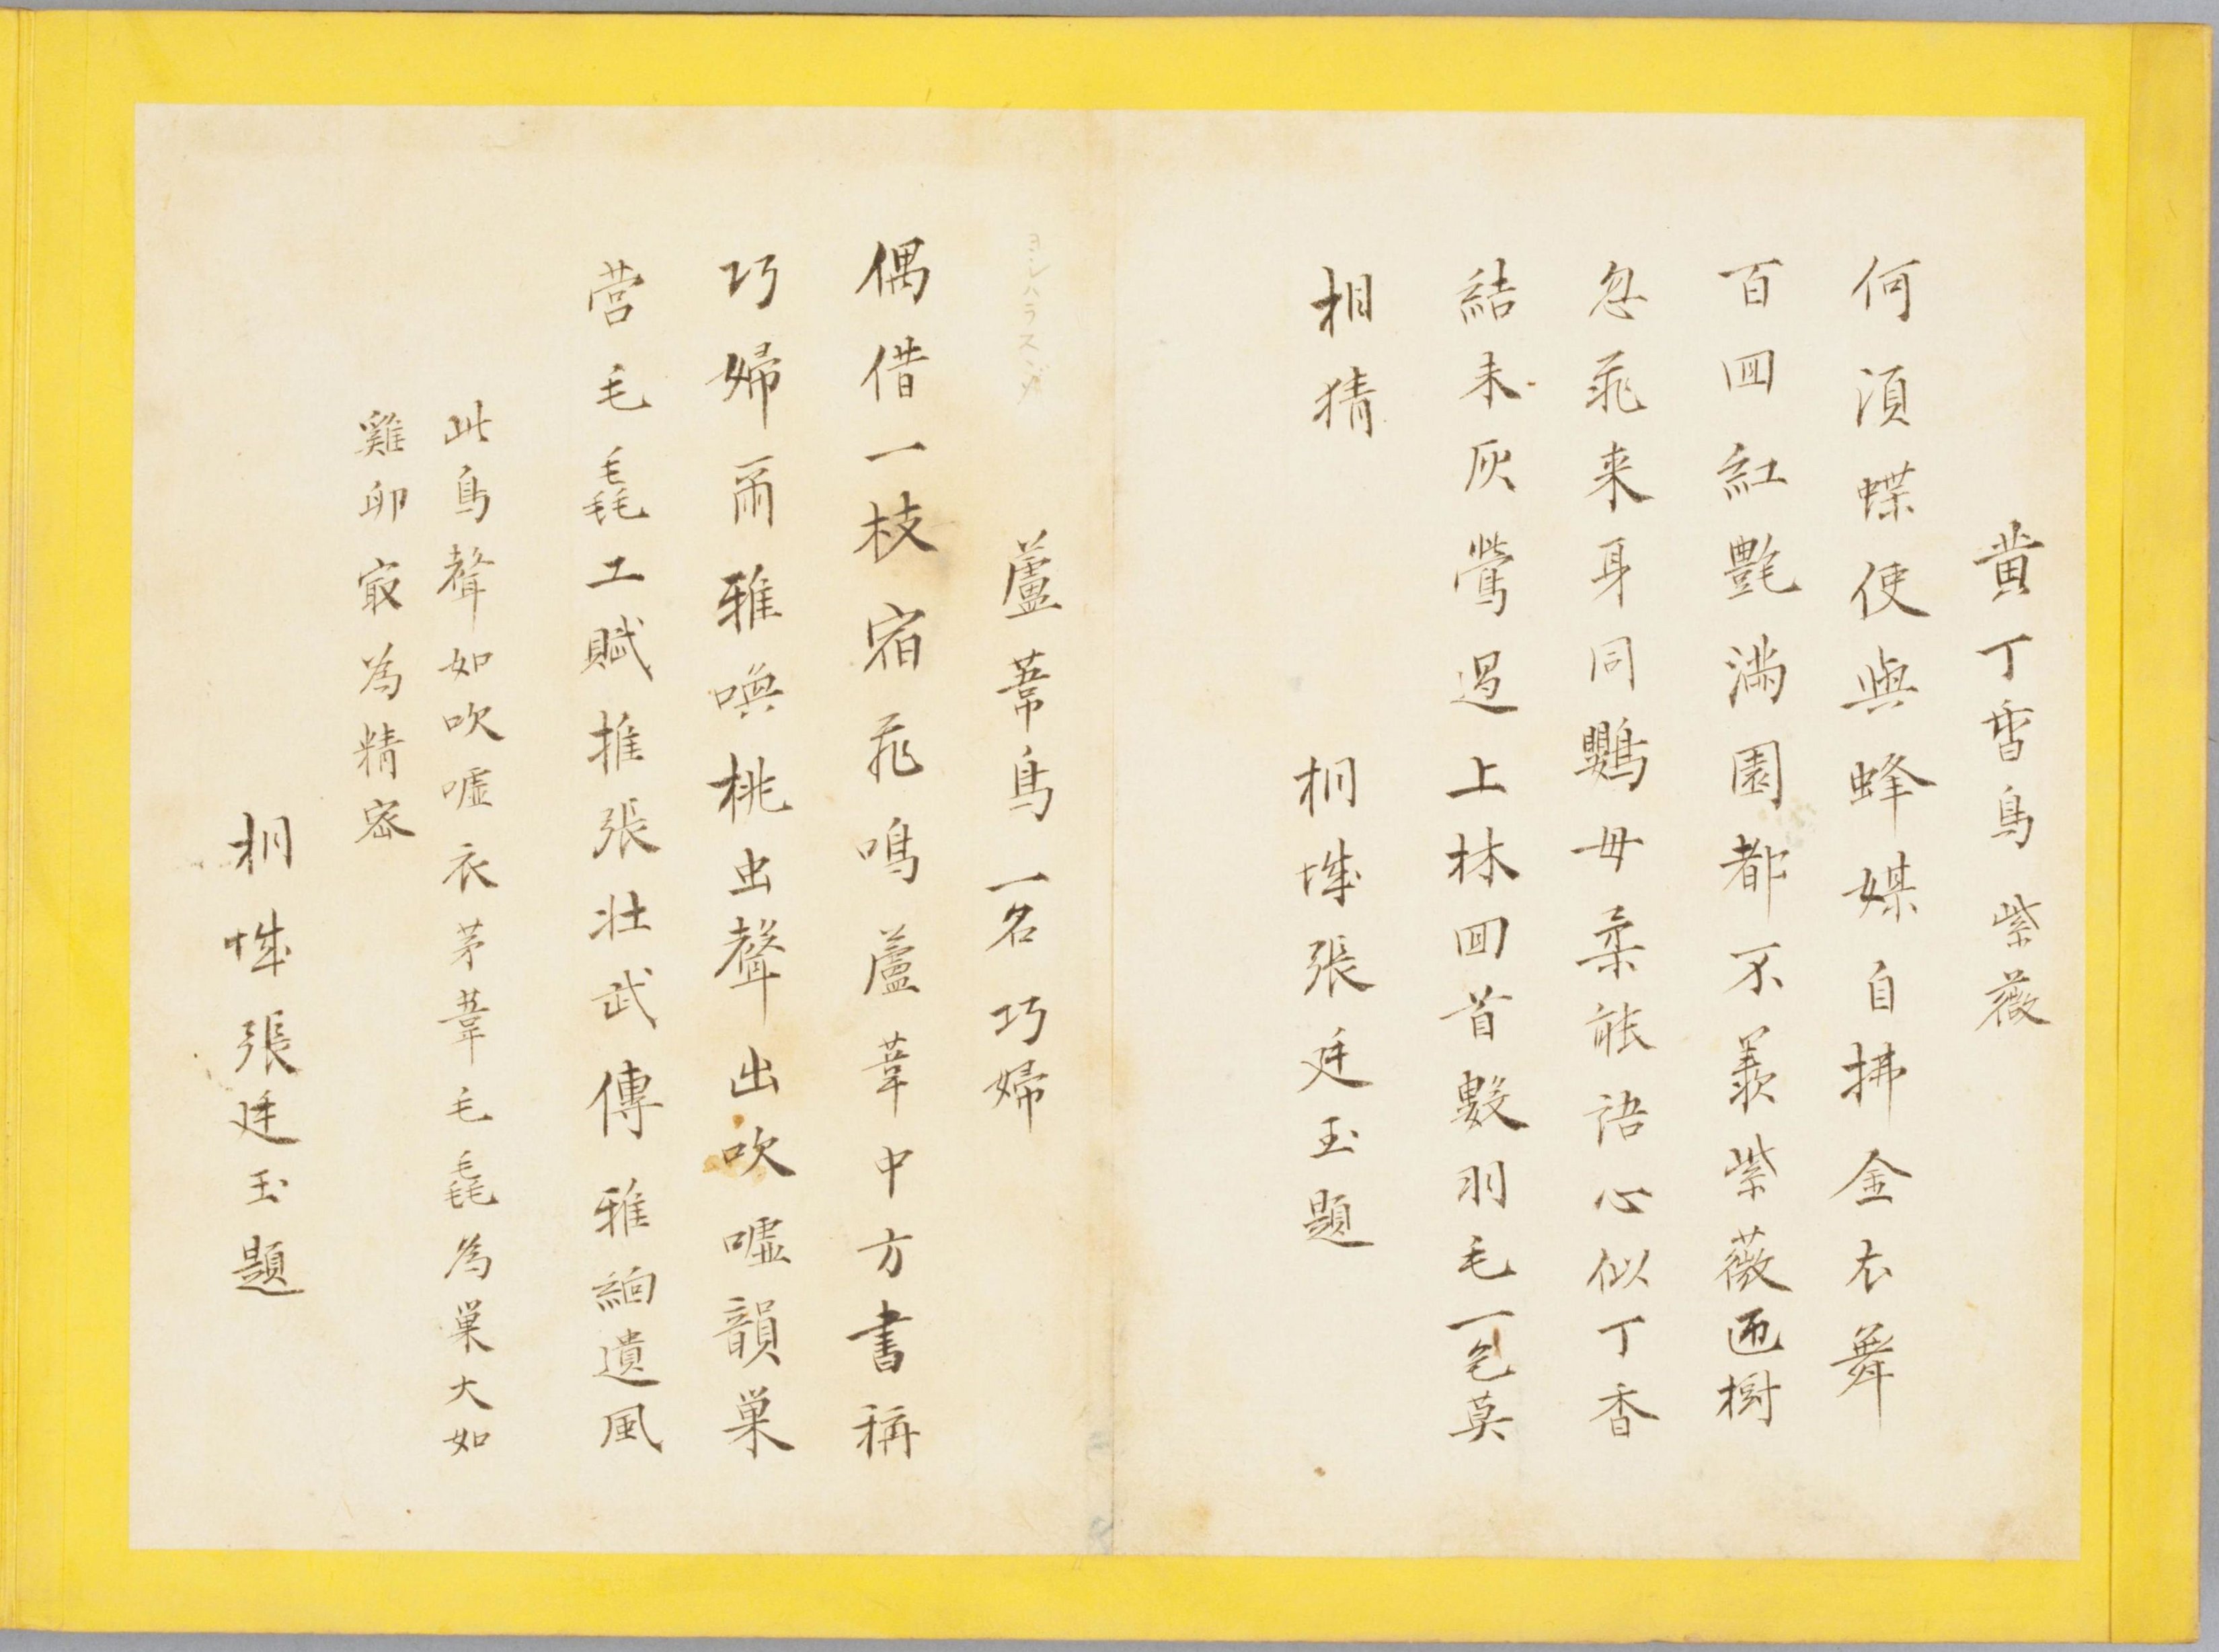 黄丁香鳥 紫薇
何湏蝶使與蜂媒自拂金衣舞
百囬紅艶満園都不羨紫薇迊樹
忽飛来身同鸚母柔能語心似丁香
結未灰鶯過上林囬首數羽毛一色莫
相猜
桐城張廷玉題
蘆葦鳥 一名巧婦
偶借一枝宿飛鳴蘆葦中方書稱
巧婦爾雅喚桃虫聲出吹嘘韻巢
营毛毳工賦推張壮武傳雅緬遺風
此鳥聲如吹嘘衣茅葦毛毳為巢大如
雞卵㝡為精密
桐城張廷玉題